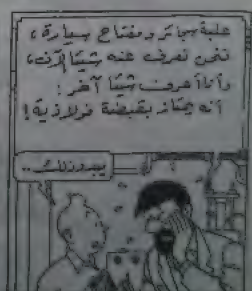 علبة سجائر ومفتاح سيارة،
نحن نعرف عنه شيئاً الآن،
وأنا أعرف شيئاً آخر:
أنه يمتاز بقبضة فولاذية!
يبدو ذلك..